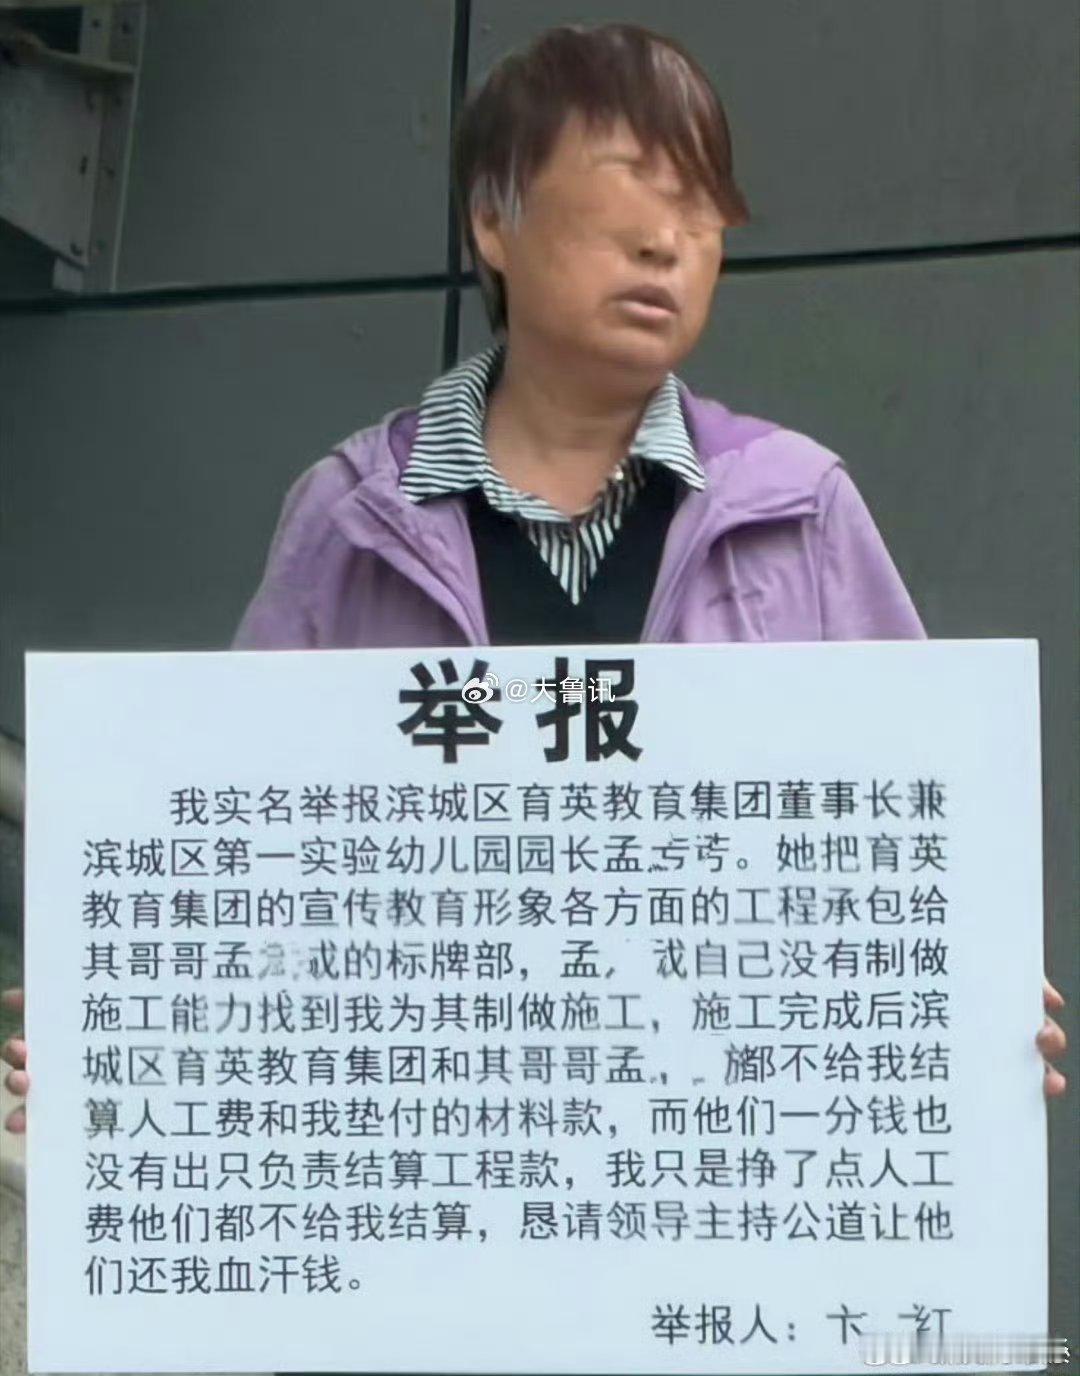 @大鲁讯
举报
我实名举报滨城区育英教育集团董事长兼
滨城区第一实验幼儿园园长孟。她把育英
教育集团的宣传教育形象各方面的工程承包给
其哥哥孟的标牌部，孟自己没有制做
施工能力找到我为其制做施工，施工完成后滨
城区育英教育集团和其哥哥孟都不给我结
算人工费和我垫付的材料款，而他们一分钱也
没有出只负责结算工程款，我只是挣了点人工
费他们都不给我结算，恳请领导主持公道让他
们还我血汗钱。
举报人：卞 红